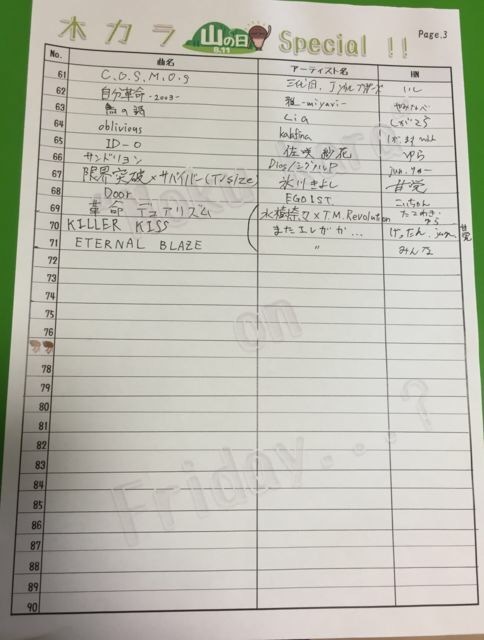 木カラ 山の日 8.11 Special !! Page.3
No. 曲名 アーティスト名 HN
61 C.O.S.M.O.S 三代目, J Soul
62 自分革命 -2003- 雅-miyavi-
63 Lia
64 oblivious kalafina
65 ID-0 佐咲紗花 ゆら
66 サンドリヨン Dios/シグナルP
67 限界突破×サバイバー(TV size) 氷川きよし 甘党
68 Door EGO 1ST. こいちゃん
69 革命デュアリズム 水樹奈々×T.M.Revolution
70 KILLER KISS またエレガが... 甘党
71 ETERNAL BLAZE 〃 みんな
72
73
74
75
76
78
79
80
81
82
83
84
85
86
87
88
89
90
Mokukara
on
Friday...?